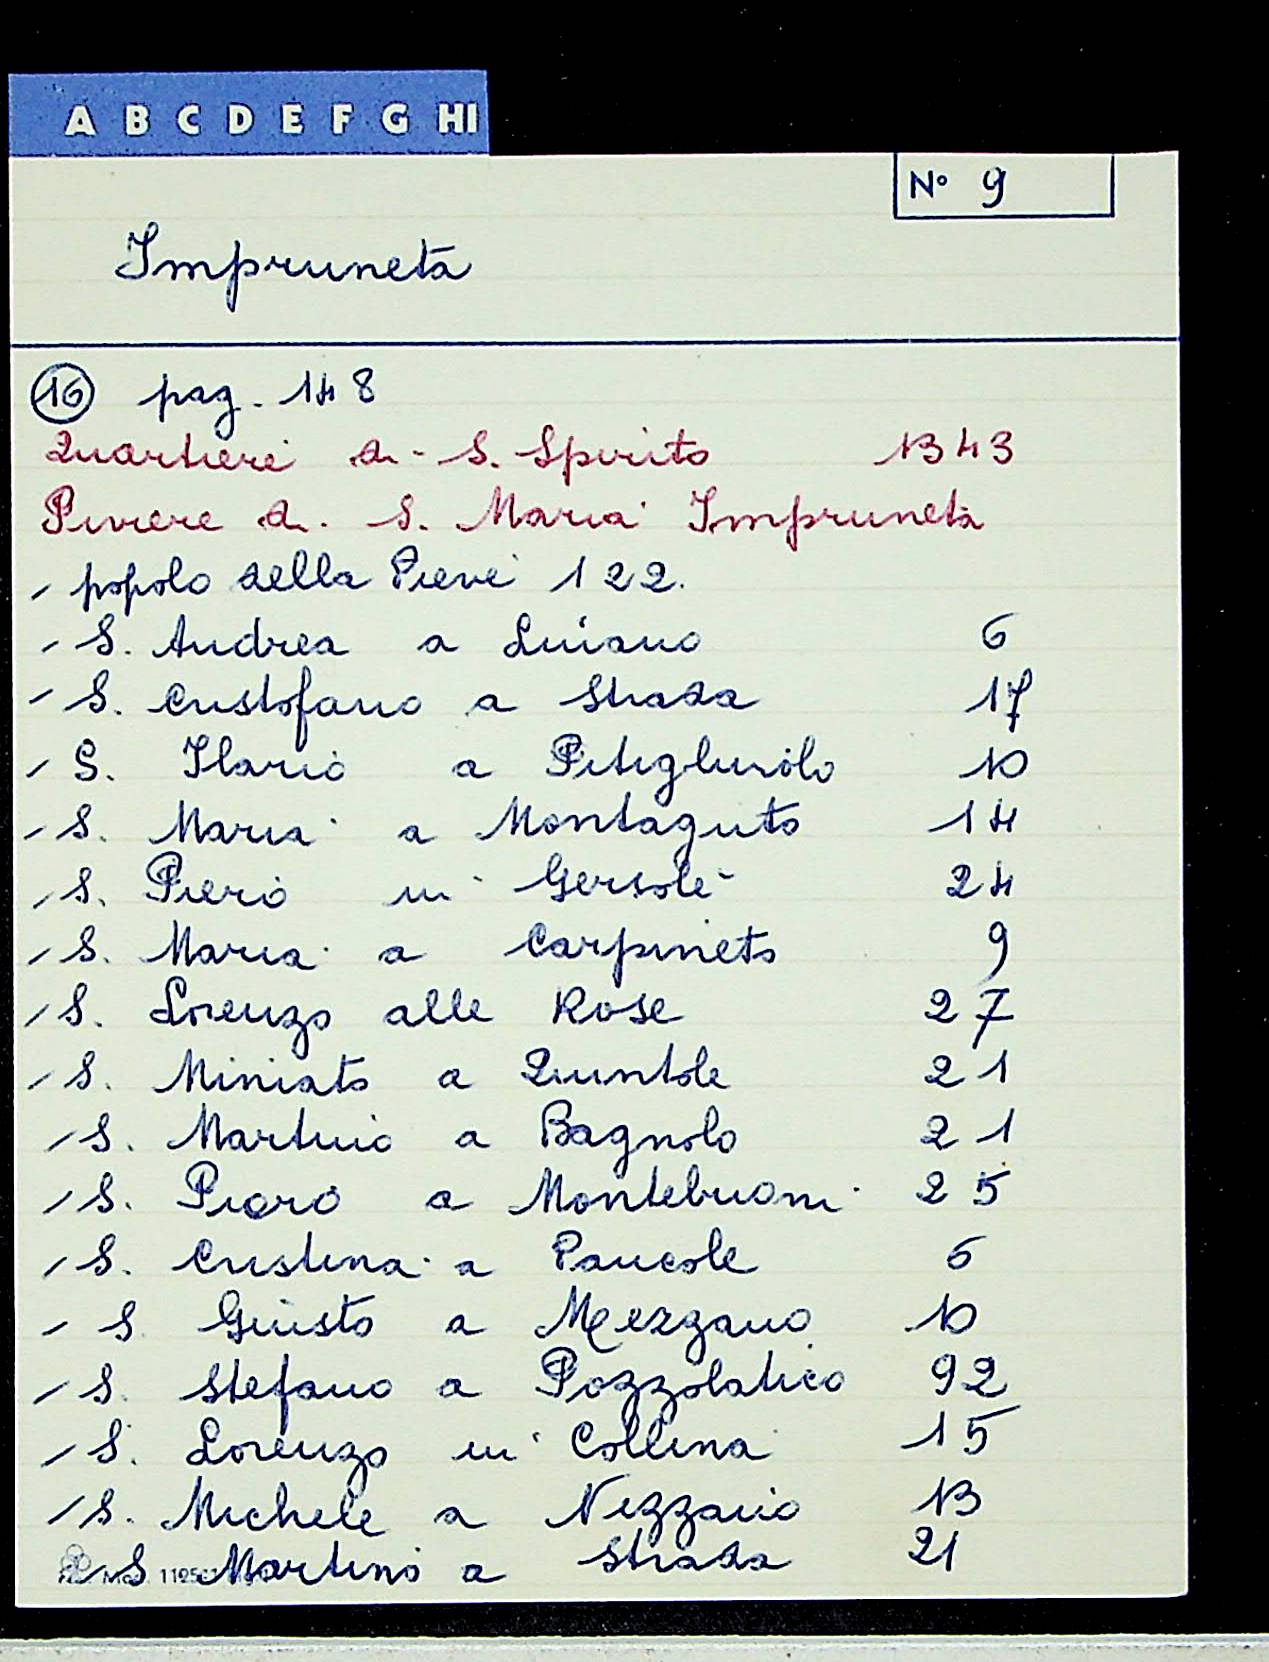 A B C D E F G HI
N° 9
Impruneta
16 pag. 148
Quartiere di S. Spirito 1343
Piviere di S. Maria Impruneta
- popolo della Pieve 122.
- S. Andrea a Luiano 6
- S. Cristofano a Strada 17
- S. Ilario a Pitigliuolo 10
- S. Maria a Montaguto 14
- S. Piero in Gersolè 24
- S. Maria a Carpineto 9
- S. Lorenzo alle Rose 27
- S. Miniato a Quintole 21
- S. Martino a Bagnolo 21
- S. Piero a Montebuoni 25
- S. Cristina a Pancole 6
- S. Giusto a Mezzano 10
- S. Stefano a Pozzolatico 92
- S. Lorenzo in Collina 15
- S. Michele a Nizzano 13
- S Martino a Strada 21